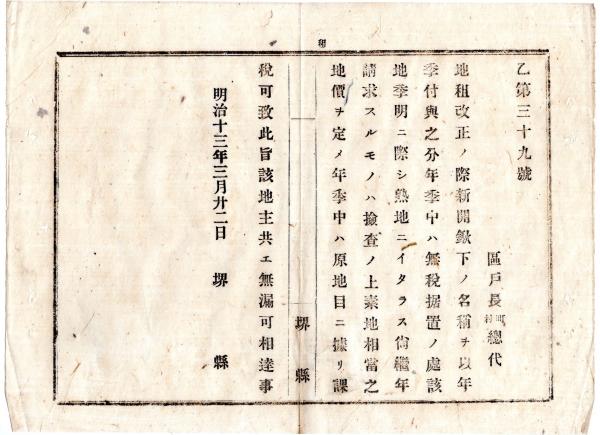 乙第三十九號
區戸長町村總代
地租改正ノ際新開鍬下ノ名稱ヲ以年
季付與之分年季中ハ無税据置ノ處該
地季明ニ際シ熟地ニイタラス尚繼年
請求スルモノハ撿査ノ上素地相當之
地價ヲ定メ年季中ハ原地目ニ據リ課
堺縣
税可致此旨該地主共エ無漏可相達事
明治十三年三月廿二日 堺縣